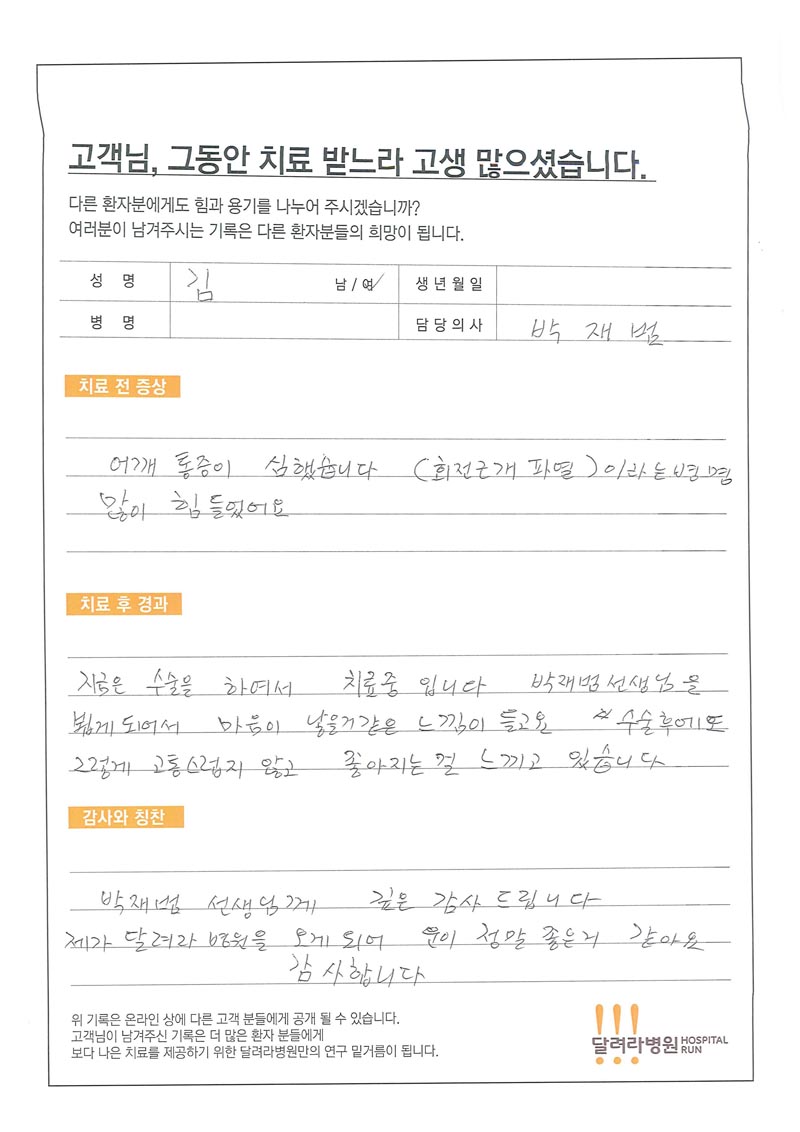 고객님, 그동안 치료 받느라 고생 많으셨습니다.
다른 환자분에게도 힘과 용기를 나누어 주시겠습니까?
여러분이 남겨주시는 기록은 다른 환자분들의 희망이 됩니다.
성 명 김 남 / 여 생년월일
병 명 담당의사 박재범
치료 전 증상
어깨 통증이 심했습니다 (회전근개 파열) 이라는 병명
많이 힘들었어요
치료 후 경과
지금은 수술을 하여서 치료중 입니다 박재범선생님을
뵙게되어서 마음이 낳을거같은 느낌이 들고요 수술후에도
그렇게 고통스럽지 않고 좋아지는 걸 느끼고 있습니다
감사와 칭찬
박재범 선생님께 깊은 감사 드립니다
제가 달려라 병원을 오게 되어 운이 정말 좋은거 같아요
감사합니다
위 기록은 온라인 상에 다른 고객 분들에게 공개 될 수 있습니다.
고객님이 남겨주신 기록은 더 많은 환자 분들에게
보다 나은 치료를 제공하기 위한 달려라병원만의 연구 밑거름이 됩니다.
!!! 달려라병원 HOSPITAL RUN